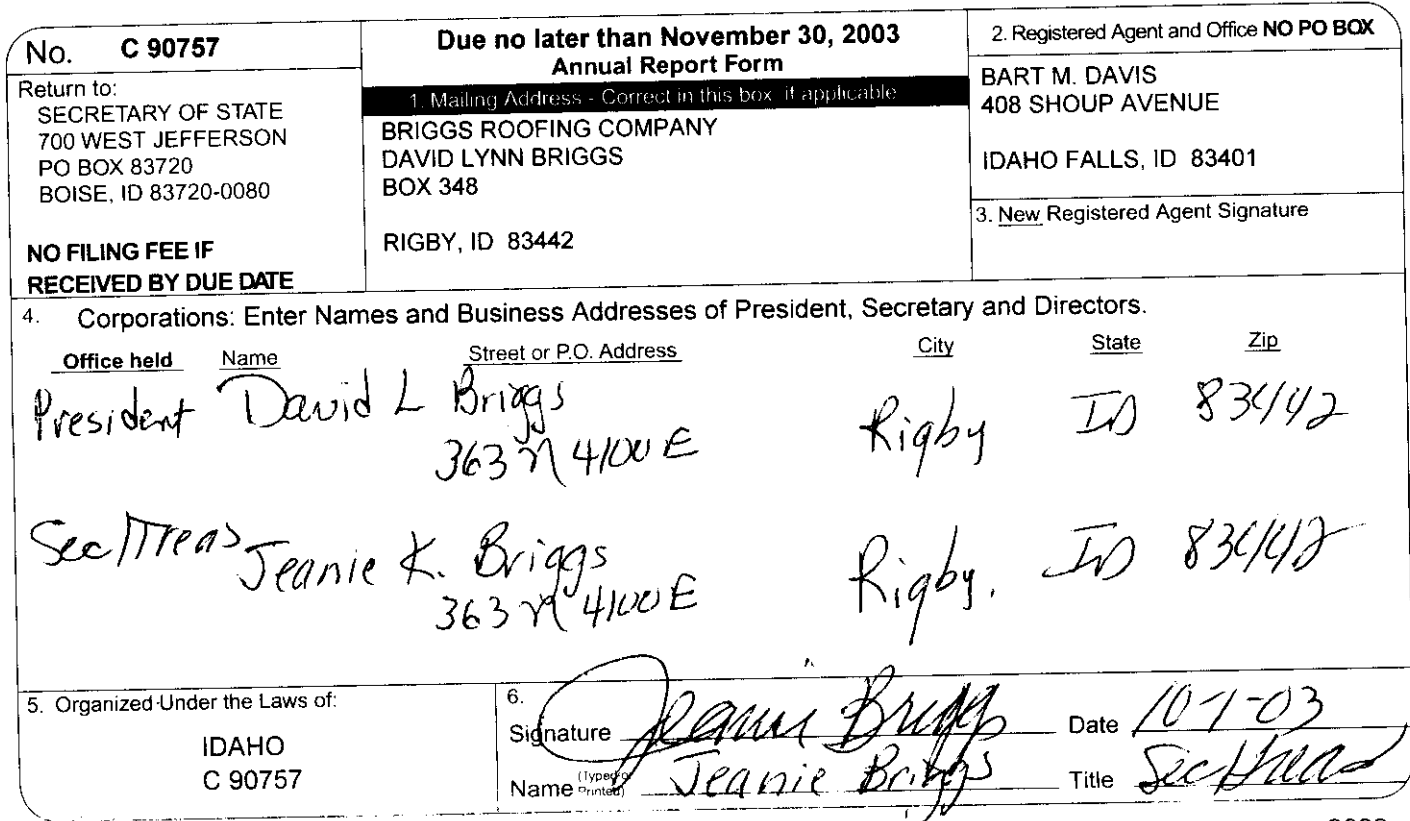 No. C 90757
Return to:
SECRETARY OF STATE
700 WEST JEFFERSON
PO BOX 83720
BOISE, ID 83720-0080
NO FILING FEE IF
RECEIVED BY DUE DATE
Due no later than November 30, 2003
Annual Report Form
1. Mailing Address - Correct in this box if applicable
BRIGGS ROOFING COMPANY
DAVID LYNN BRIGGS
BOX 348
RIGBY, ID 83442
2. Registered Agent and Office NO PO BOX
BART M. DAVIS
408 SHOUP AVENUE
IDAHO FALLS, ID 83401
3. New Registered Agent Signature
4. Corporations: Enter Names and Business Addresses of President, Secretary and Directors.
Office held Name Street or P.O. Address City State Zip
President David L Briggs Rigby ID 83442
363 N 4100 E
Sec/Treas Jeanie K. Briggs Rigby, ID 83442
363 N 4100 E
5. Organized Under the Laws of:
IDAHO
C 90757
6.
Signature Jeanie Briggs Date 10-1-03
Name (Typed or Printed) Jeanie Briggs Title Sec/Treas